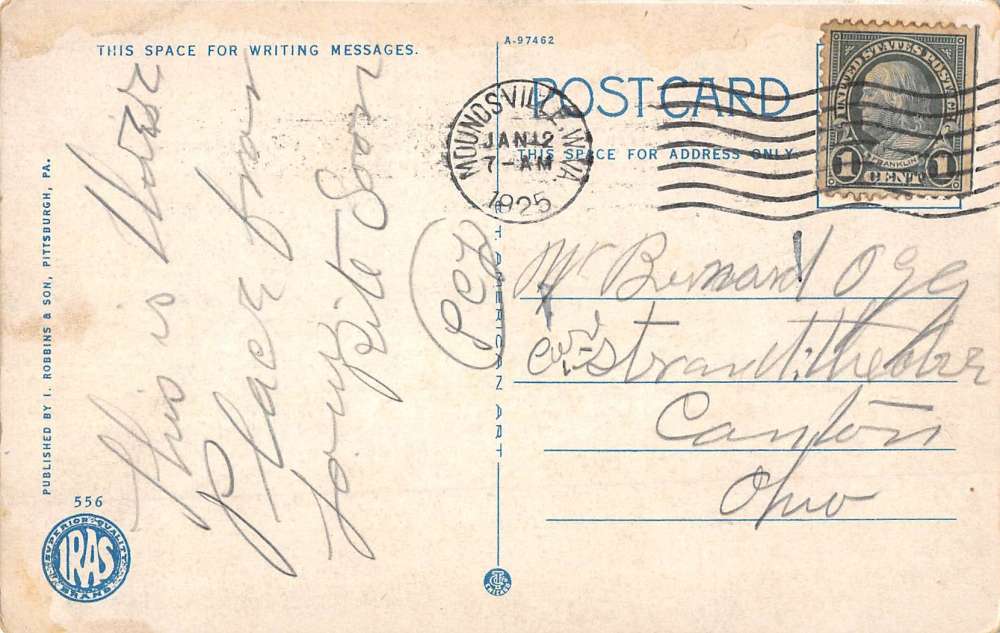 THIS SPACE FOR WRITING MESSAGES.
A-97462
POST CARD
THIS SPACE FOR ADDRESS ONLY.
MOUNDSVILLE W.VA.
JAN 12
7-AM
1925
UNITED STATES POSTAGE
FRANKLIN
1 CENT 1
This is
Place from
Write Soon
PC2
Mr Bernard Ogg
Strand Theatre
Canton
Ohio
PUBLISHED BY I. ROBBINS & SON, PITTSBURGH, PA.
556
SUPERIOR QUALITY
IRAS
BRAND
AMERICAN ART